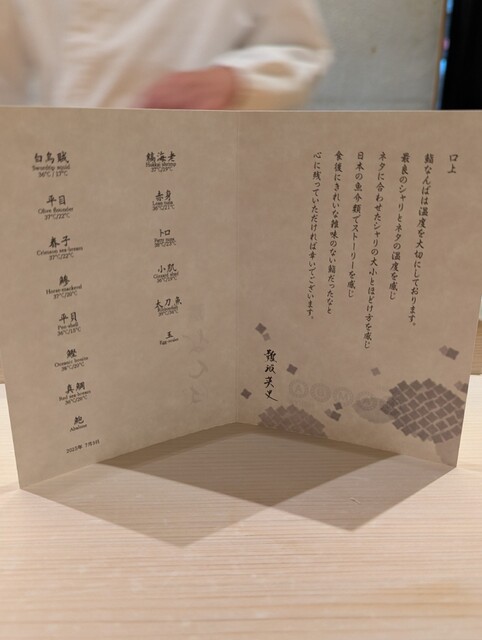 口上
鮨なんばは温度を大切にしております。
最良のシャリとネタの温度を感じ
ネタに合わせたシャリの大小とほどけ方を感じ
日本の魚介類でストーリーを感じ
食後にきれいな雑味のない鮨だったなと
心に残っていただければ幸いでございます。
難波英史
縞海老
赤身
トロ
小肌
太刀魚
玉
Egg cake
白烏賊
Swordtip squid
36℃ / 17℃
平目
Olive flounder
37℃/22℃
春子
Crimson sea bream
37℃/22℃
鯵
Horse-mackerel
平貝
Pen-shell
鰹
真鯛
Red sea bream
鮑
Abalone
2025年 7月3日